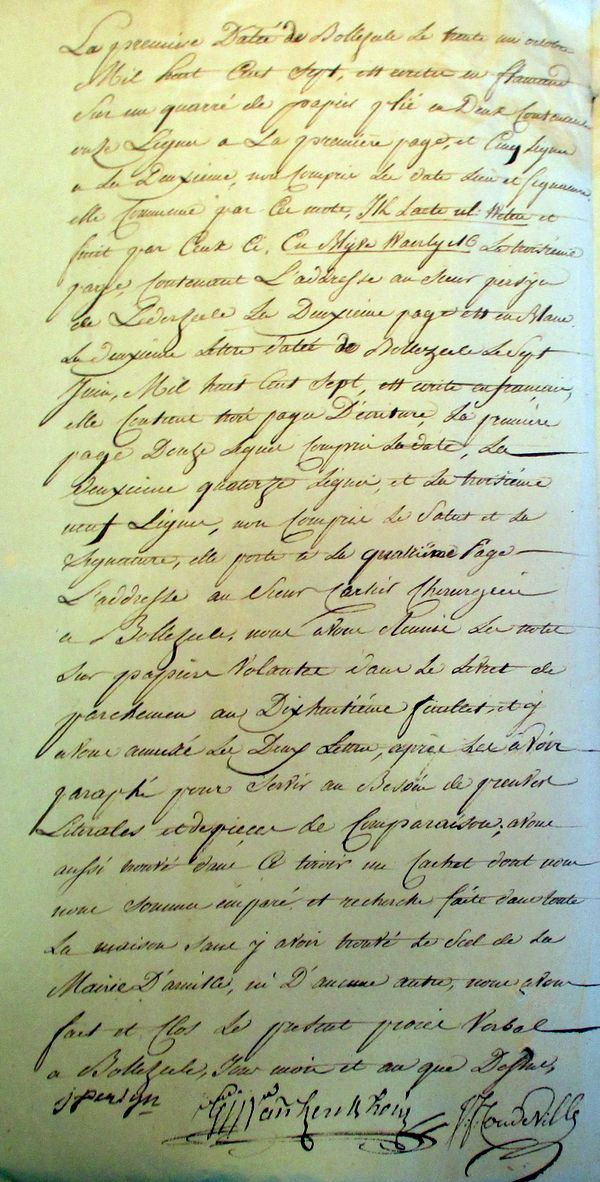 La premiere Datée de Bollezeele Le trente un octobre
Mil huit Cent Sept, est ecritte en flamand
Sur un quarré de papier plié en Deux Contenant
onze Lignes a La premiére page, et Cinq Lignes
a La Deuxieme, non Compris La date Lieu et Signature,
elle Commence par Ces mots, Ik Laete ul: et
finit par Ceux Ci, La troisiéme
page, Contenant L'addresse au Sieur persyn
de Lederzeele La Deuxieme page est en Blanc
La deuxieme Lettre datée de Bollezeele Le Sept
Juin, Mil huit Cent Sept, est ecrite en francais,
elle Contient trois pages D'écriture, La premiére
page Douze Lignes Compris La date, La
deuxieme quatorze Lignes, et La troisiéme
neuf Lignes, non Compris Le Salut et La
Signature, elle porte a La quatriéme Page
L'addresse au Sieur Cartier Chirurgien
a Bollezeele, nous avons Remis Les notes
Sur papiers Volantes dans Le Livret de
parchemen au Dixhuitiéme feuillet, et y
avons annexé Les Deux Lettres, aprés Les avoir
paraphé pour Servir au Besoin de preuves
Literales et de pieces de Comparaison, avons
aussi trouvé dans Ce tiroir un Cachet dont nous
nous sommes emparé et recherche faite dans toute
La maison sans y avoir trouvé Le Scel de La
Mairie D'arnille, ni D'aucune autre, nous avons
fait et Clos Le present procés Verbal
a Bollezeele, Jour mois et an que Dessus,
j persyn Vankenkhove J Houdeville